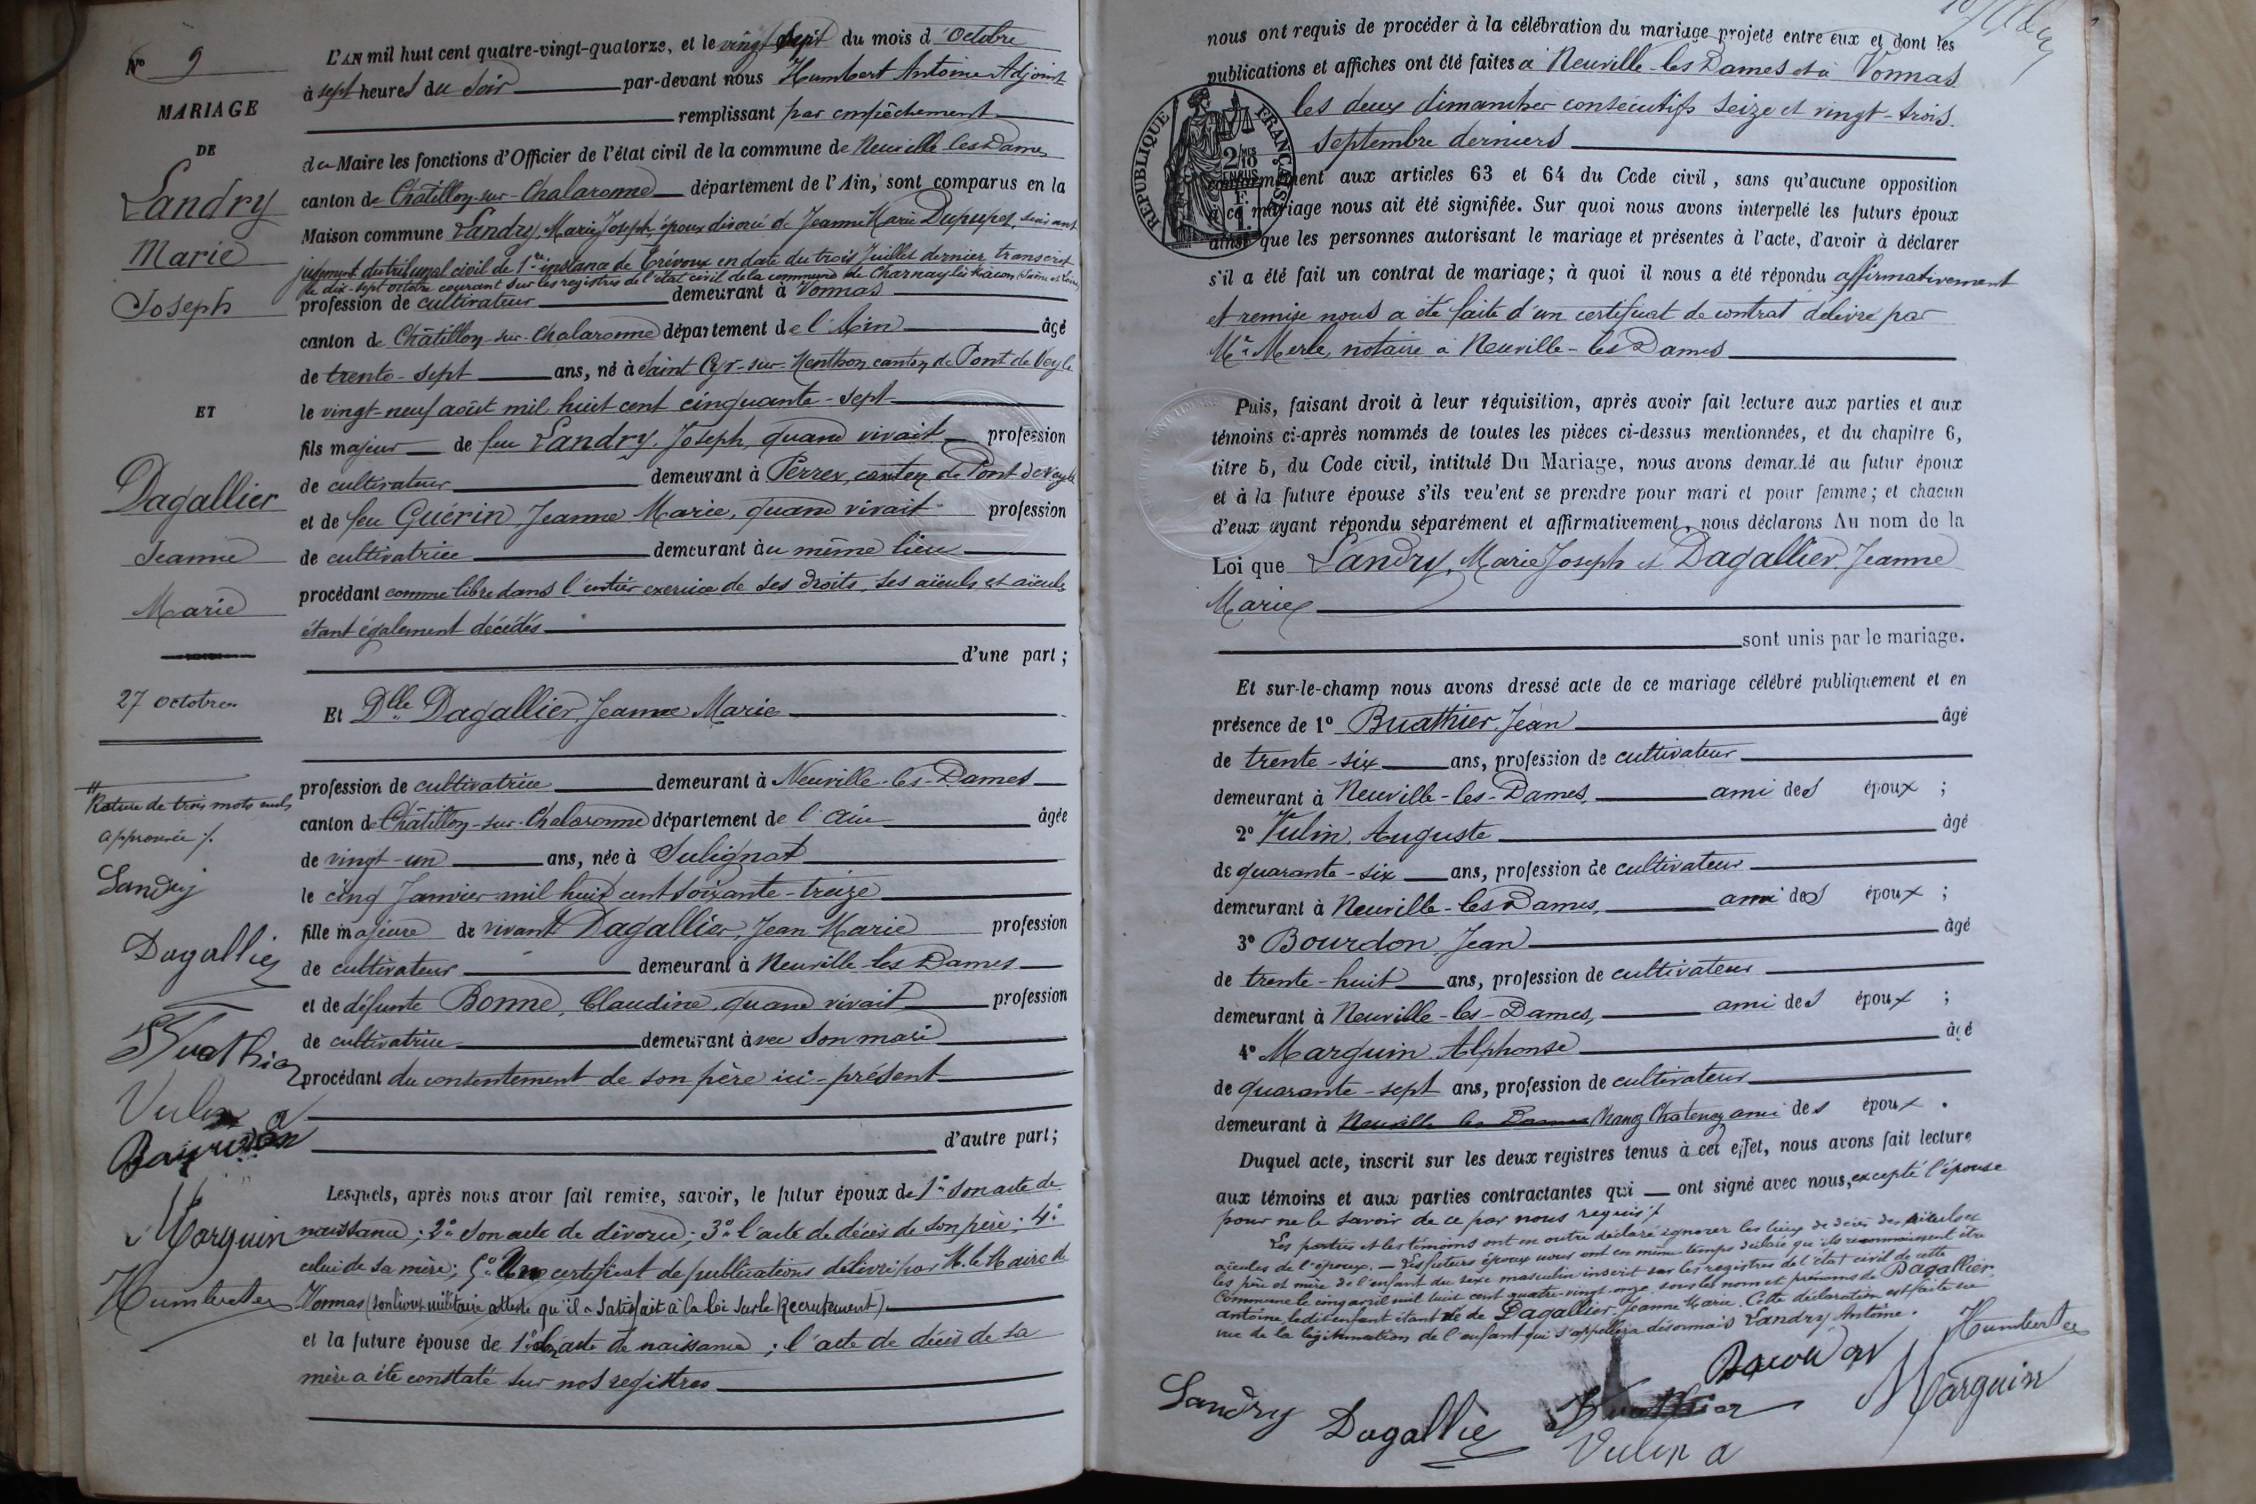 Nº 9
MARIAGE
DE
Landry
Marie
Joseph
ET
Dagallier
Jeanne
Marie
27 octobre
Rature de trois mots nuls
approuvée ./.
Landry
Dagallier
Buathier
Vulin a
Bourdon
Marguin
Humbert
L'AN mil huit cent quatre-vingt-quatorze, et le vingt sept du mois d'Octobre
à sept heures du soir par-devant nous Humbert Antoine Adjoint
remplissant par empêchement
du Maire les fonctions d'Officier de l'état civil de la commune de Neuville-les-Dames
canton de Châtillon-sur-Chalaronne département de l'Ain, sont comparus en la
Maison commune Landry, Marie Joseph, époux divorcé de Jeanne Marie Dupuget, suivant
jugement du tribunal civil de 1re instance de Trévoux en date du trois Juillet dernier transcrit
le dix-sept octobre courant sur les registres de l'état civil de la commune de Charnay-lès-Mâcon (Saône et Loire)
profession de cultivateur demeurant à Vonnas
canton de Châtillon-sur-Chalaronne département de l'Ain âgé
de trente-sept ans, né à Saint Cyr-sur-Menthon canton de Pont de Veyle
le vingt-neuf août mil huit cent cinquante-sept
fils majeur de feu Landry, Joseph, quand vivait profession
de cultivateur demeurant à Perrex, canton de Pont de Veyle
et de feu Guérin Jeanne Marie, quand vivait profession
de cultivatrice demeurant au même lieu
procédant comme libre dans l'entier exercice de ses droits, ses aïeuls et aïeules
étant également décédés
d'une part;
Et Dlle Dagallier Jeanne Marie
profession de cultivatrice demeurant à Neuville-les-Dames
canton de Châtillon-sur-Chalaronne département de l'Ain âgée
de vingt-un ans, née à Sulignat
le cinq Janvier mil huit cent soixante-treize
fille majeure de vivant Dagallier, Jean Marie profession
de cultivateur demeurant à Neuville-les-Dames
et de défunte Bonne, Claudine, quand vivait profession
de cultivatrice demeurant avec son mari
procédant du consentement de son père ici-présent
d'autre part;
Lesquels, après nous avoir fait remise, savoir, le futur époux de 1º son acte de
naissance; 2º son acte de divorce; 3º l'acte de décès de son père; 4º
celui de sa mère; 5º Un certificat de publications délivré par M. le Maire de
Vonnas (son livret militaire atteste qu'il a satisfait à la loi sur le Recrutement)
et la future épouse de 1º l'acte de naissance; l'acte de décès de sa
mère a été constaté sur nos registres
nous ont requis de procéder à la célébration du mariage projeté entre eux et dont les
publications et affiches ont été faites à Neuville-les-Dames et à Vonnas
les deux dimanches consécutifs seize et vingt-trois
septembre derniers
RÉPUBLIQUE FRANÇAISE
2/10 EN SUS
conformément aux articles 63 et 64 du Code civil, sans qu'aucune opposition
à ce mariage nous ait été signifiée. Sur quoi nous avons interpellé les futurs époux
ainsi que les personnes autorisant le mariage et présentes à l'acte, d'avoir à déclarer
s'il a été fait un contrat de mariage; à quoi il nous a été répondu affirmativement
et remise nous a été faite d'un certificat de contrat délivré par
Me Merle, notaire à Neuville-les-Dames
Puis, faisant droit à leur réquisition, après avoir fait lecture aux parties et aux
témoins ci-après nommés de toutes les pièces ci-dessus mentionnées, et du chapitre 6,
titre 5, du Code civil, intitulé Du Mariage, nous avons demandé au futur époux
et à la future épouse s'ils veulent se prendre pour mari et pour femme; et chacun
d'eux ayant répondu séparément et affirmativement, nous déclarons Au nom de la
Loi que Landry, Marie Joseph et Dagallier Jeanne
Marie
sont unis par le mariage.
Et sur-le-champ nous avons dressé acte de ce mariage célébré publiquement et en
présence de 1º Buathier Jean âgé
de trente-six ans, profession de cultivateur
demeurant à Neuville-les-Dames, ami des époux ;
2º Vulin, Auguste âgé
de quarante-six ans, profession de cultivateur
demeurant à Neuville-les-Dames, ami des époux ;
3º Bourdon Jean âgé
de trente-huit ans, profession de cultivateur
demeurant à Neuville-les-Dames, ami des époux ;
4º Marguin Alphonse âgé
de quarante-sept ans, profession de cultivateur
demeurant à Neuville les Dames Chanoz Chatenay ami des époux .
Duquel acte, inscrit sur les deux registres tenus à cet effet, nous avons fait lecture
aux témoins et aux parties contractantes qui ont signé avec nous, excepté l'épouse
pour ne le savoir de ce par nous requis ./.
Les parties et les témoins ont en outre déclaré ignorer les lieux de décès des aïeuls et
aïeules de l'époux. — Les futurs époux nous ont en même temps déclaré qu'ils reconnaissent être
les père et mère de l'enfant du sexe masculin inscrit sur les registres de l'état civil de cette
commune le cinq avril mil huit cent quatre-vingt-onze sous les nom et prénoms de Dagallier
Antoine, ledit enfant étant né de Dagallier Jeanne Marie. Cette déclaration est faite en
vue de la légitimation de l'enfant qui s'appellera désormais Landry Antoine.
Humbert
Bourdon
Landry Dagallier Buathier Marguin
Vulin a